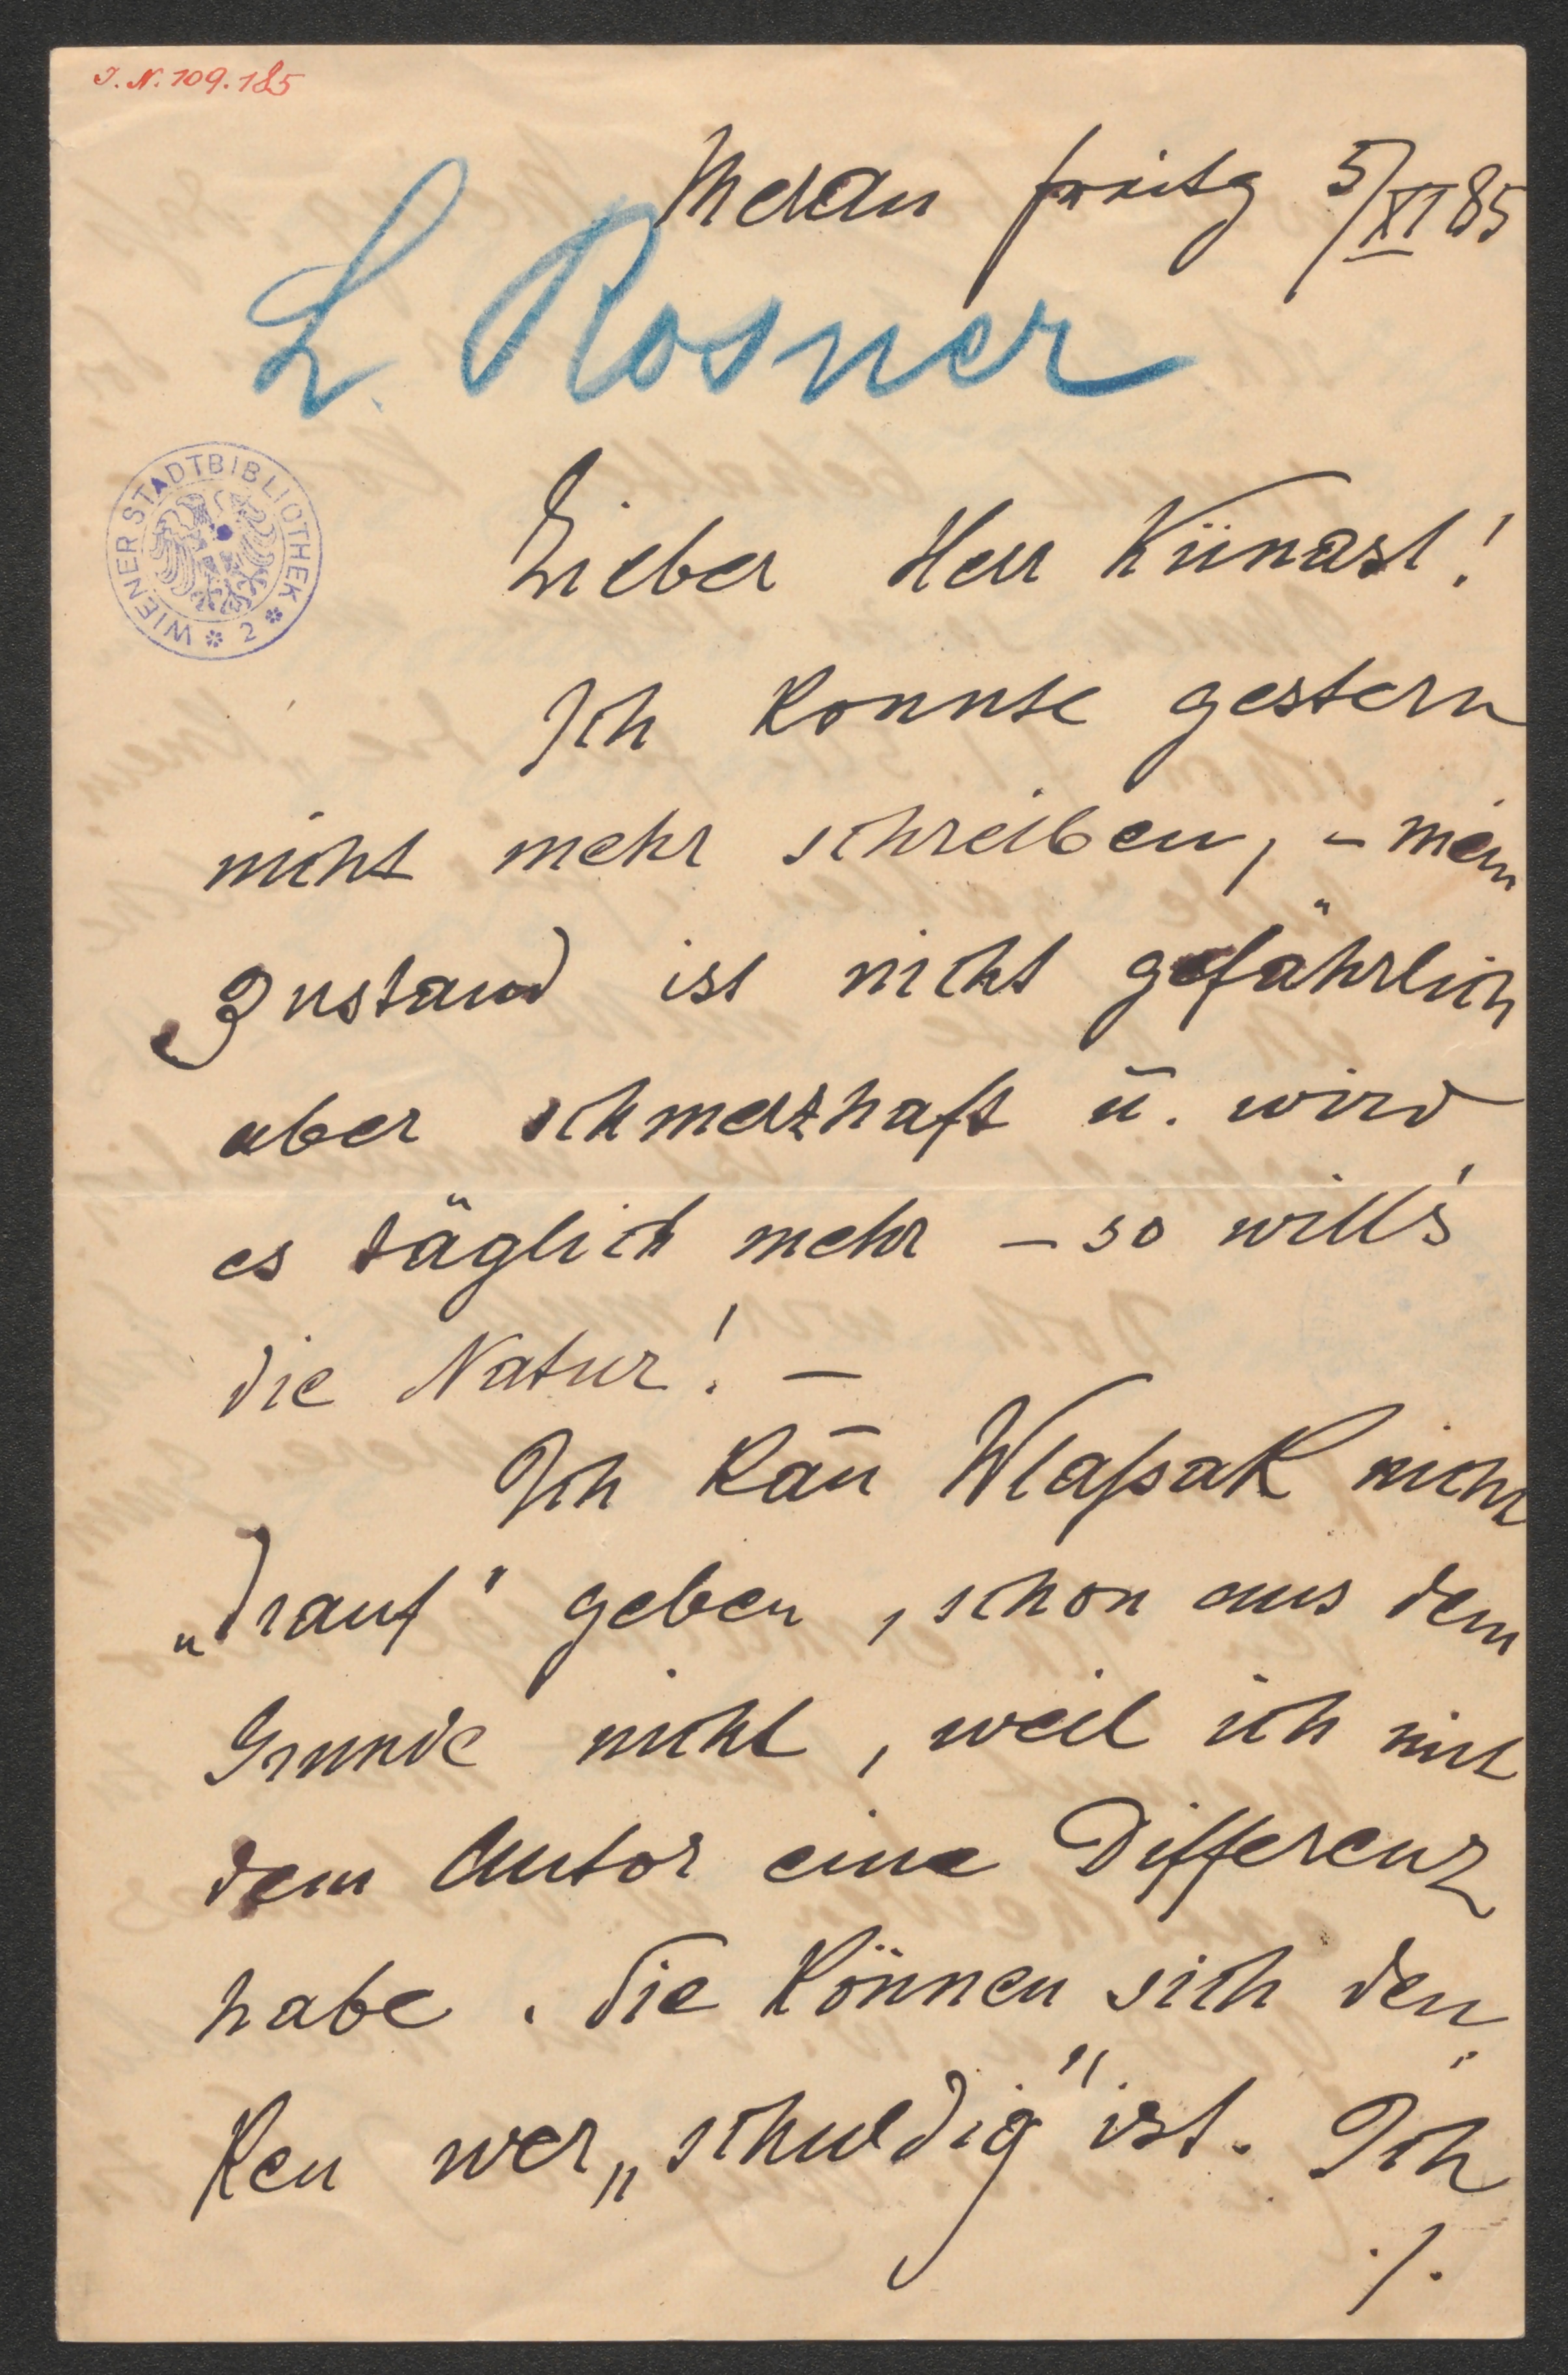 I. N. 109.185
Meran freitg 5/XI 85
L. Rosner
WIENER STADTBIBLIOTHEK * 2 *
Lieber Herr Künast!
Ich konnte gestern
nicht mehr schreiben, – mein
Zustand ist nicht gefährlich
aber schmerzhaft u. wird
es täglich mehr – so will's
die Natur! –
Ich kan̄ Wlaßak nicht
„drauf" geben, schon aus dem
Grunde nicht, weil ich mit
dem Autor eine Differenz
habe. Sie können sich den„
ken wer „schuldig" ist. Ich
./.